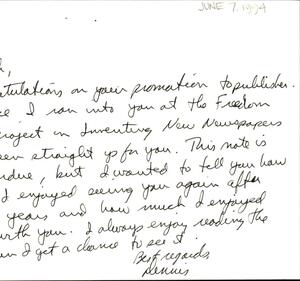 JUNE 7, 1994
,
tulations on your promotion to publisher.
ce I ran into you at the Freedom
project on Inventing New Newspapers
een straight up for you. This note is
rdue, but I wanted to tell you how
I enjoyed seeing you again after
years and how much I enjoyed
with you. I always enjoy reading the
n I get a chance to see it.
Best regards,
Dennis